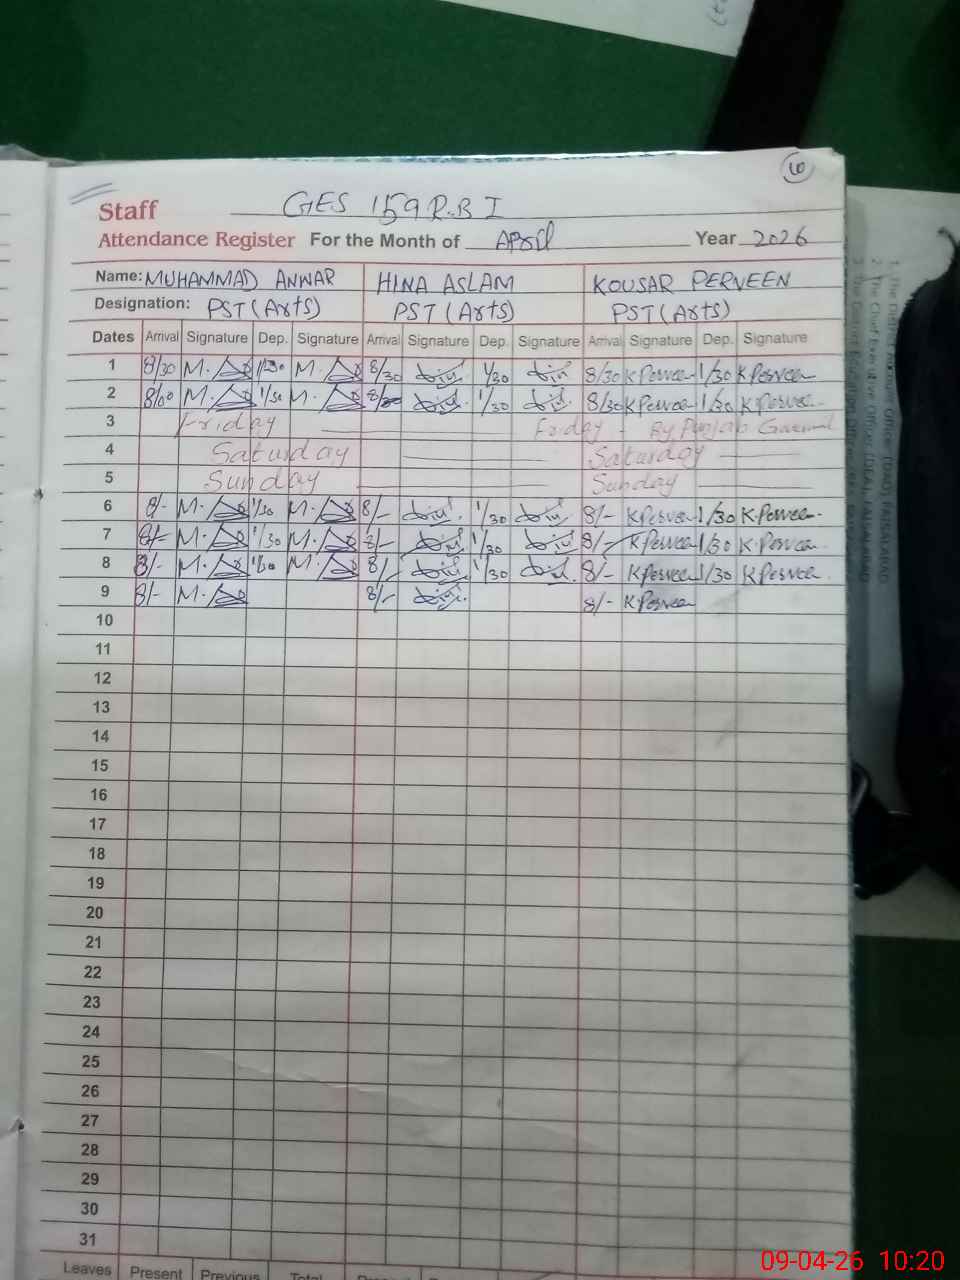 10
Staff GES 159 R.B I
Attendance Register For the Month of April Year 2026
Name: MUHAMMAD ANWAR HINA ASLAM KOUSAR PERVEEN
Designation: PST (Arts) PST (Arts) PST (Arts)
Dates Arrival Signature Dep. Signature Arrival Signature Dep. Signature Arrival Signature Dep. Signature
1 8/30 M. 1/30 M. 8/30 1/30 8/30 K Perveen 1/30 K Perveen
2 8/00 M. 1/30 M. 1/30 8/30 K Perveen 1/30 K Perveen
3 Friday Friday - By Punjab
4 Saturday Saturday
5 Sunday Sunday
6 8/- M. 1/30 M. 8/- 1/30 8/- K Perveen 1/30 K. Perveen
7 8/- M. 1/30 M. 8/- 1/30 8/- K Perveen 1/30 K. Perveen
8 8/- M. 1/30 M. 8/- 1/30 8/- K Perveen 1/30 K Perveen
9 8/- M. 8/- 8/- K Perveen
10
11
12
13
14
15
16
17
18
19
20
21
22
23
24
25
26
27
28
29
30
31
Leaves Present Previous Total
09-04-26 10:20